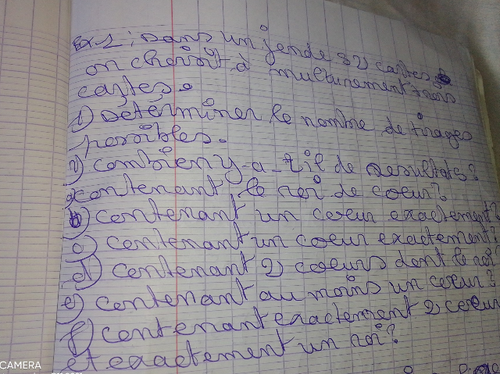 Ex 1: Dans un jende 32 cartes
on choisit simultanement trois
cartes.
1) Déterminer le nombre de tirages
possibles.
2) combien y-a-t-il de resultats?
a) contenant le roi de coeur?
b) contenant un coeur exactement?
c) contenant un coeur exactement?
d) contenant 2 coeurs dont le roi
e) contenant au moins un coeur?
f) contenant exactement 2 coeur
et exactement un roi?
CAMERA